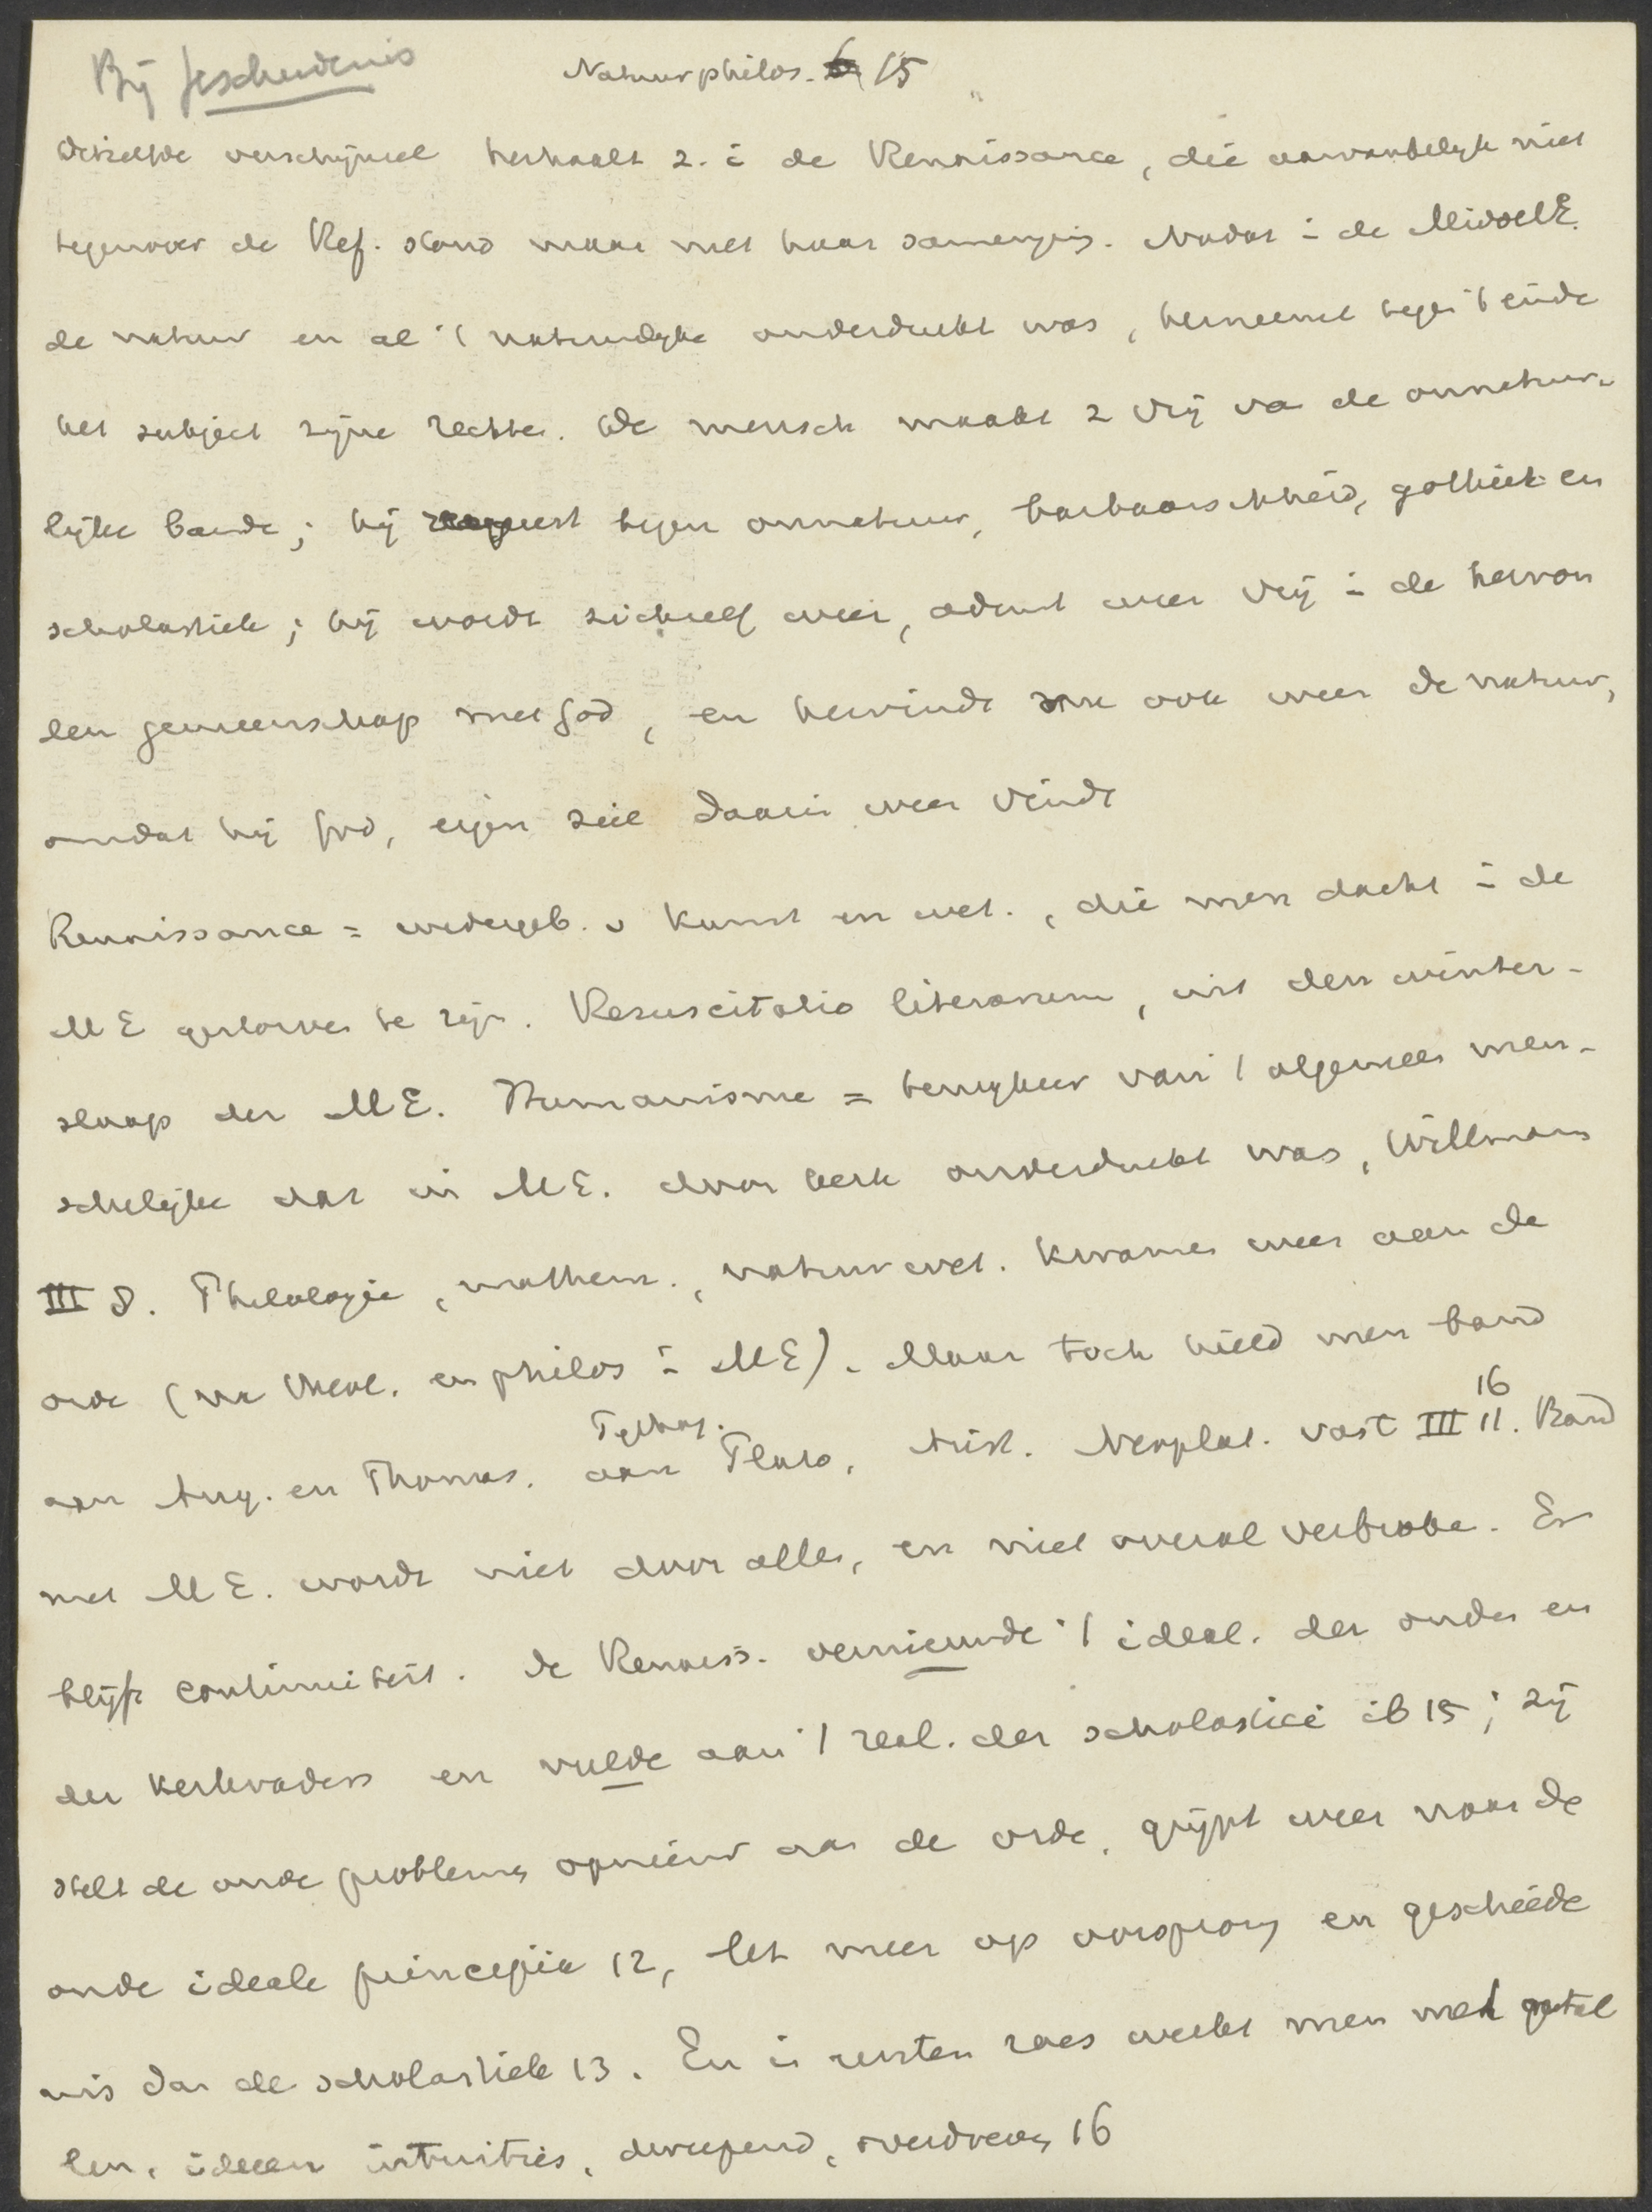 Bij Geschiedenis
Natuurphilos. 15
Hetzelfde verschijnsel herhaalt z. i de Renaissance, die aanvankelyk niet
tegenover de Ref. stond maar met haar samenging. Nadat i de MiddelE.
de natuur en al 't natuurlyke onderdrukt was, herneemt tegen 't einde
het subject zijne rechten. De mensch maakt z vrij va de onnatuur-
lijke bande; hij tegen onnatuur, barbaarschheid, gothiek en
scholastiek; hij wordt zichzelf weer, ademt weer vrij i de hervon
den gemeenschap met God, en hervindt ook weer de natuur,
omdat hij God, eigen ziel daarin weer vindt
Renaissance = wedergeb. v kunst en wet., die men dacht i de
ME gestorven te zijn. Resuscitatio literarum, uit den winter-
slaap der ME. Humanisme = terugkeer van 't algemeen men-
schelijke dat in ME. door kerk onderdrukt was, Willmann
III 8. Philologie, mathem., natuurwet. kwamen weer aan de
orde (na theol. en philos i ME). Maar toch hield men band
aan Aug. en Thomas, aan Pythag. Plato, Arist. Neoplat. vast III 11. 16 Band
met ME. wordt niet door allen, en niet overal verbroke. Er
blijft continuiteit. De Renaiss. vernieuwde 't ideal. der ouden en
der kerkvaders en vulde aan 't real. der scholastici ib 15; zij
stelt de oude problemen opnieuw aan de orde, grijpt weer naar de
oude ideale principia 12, let meer op oorsprong en geschiede
nis dan de scholastiek 13. En i rusten werkt men met getal
len, ideeen intuities, , overdreven 16